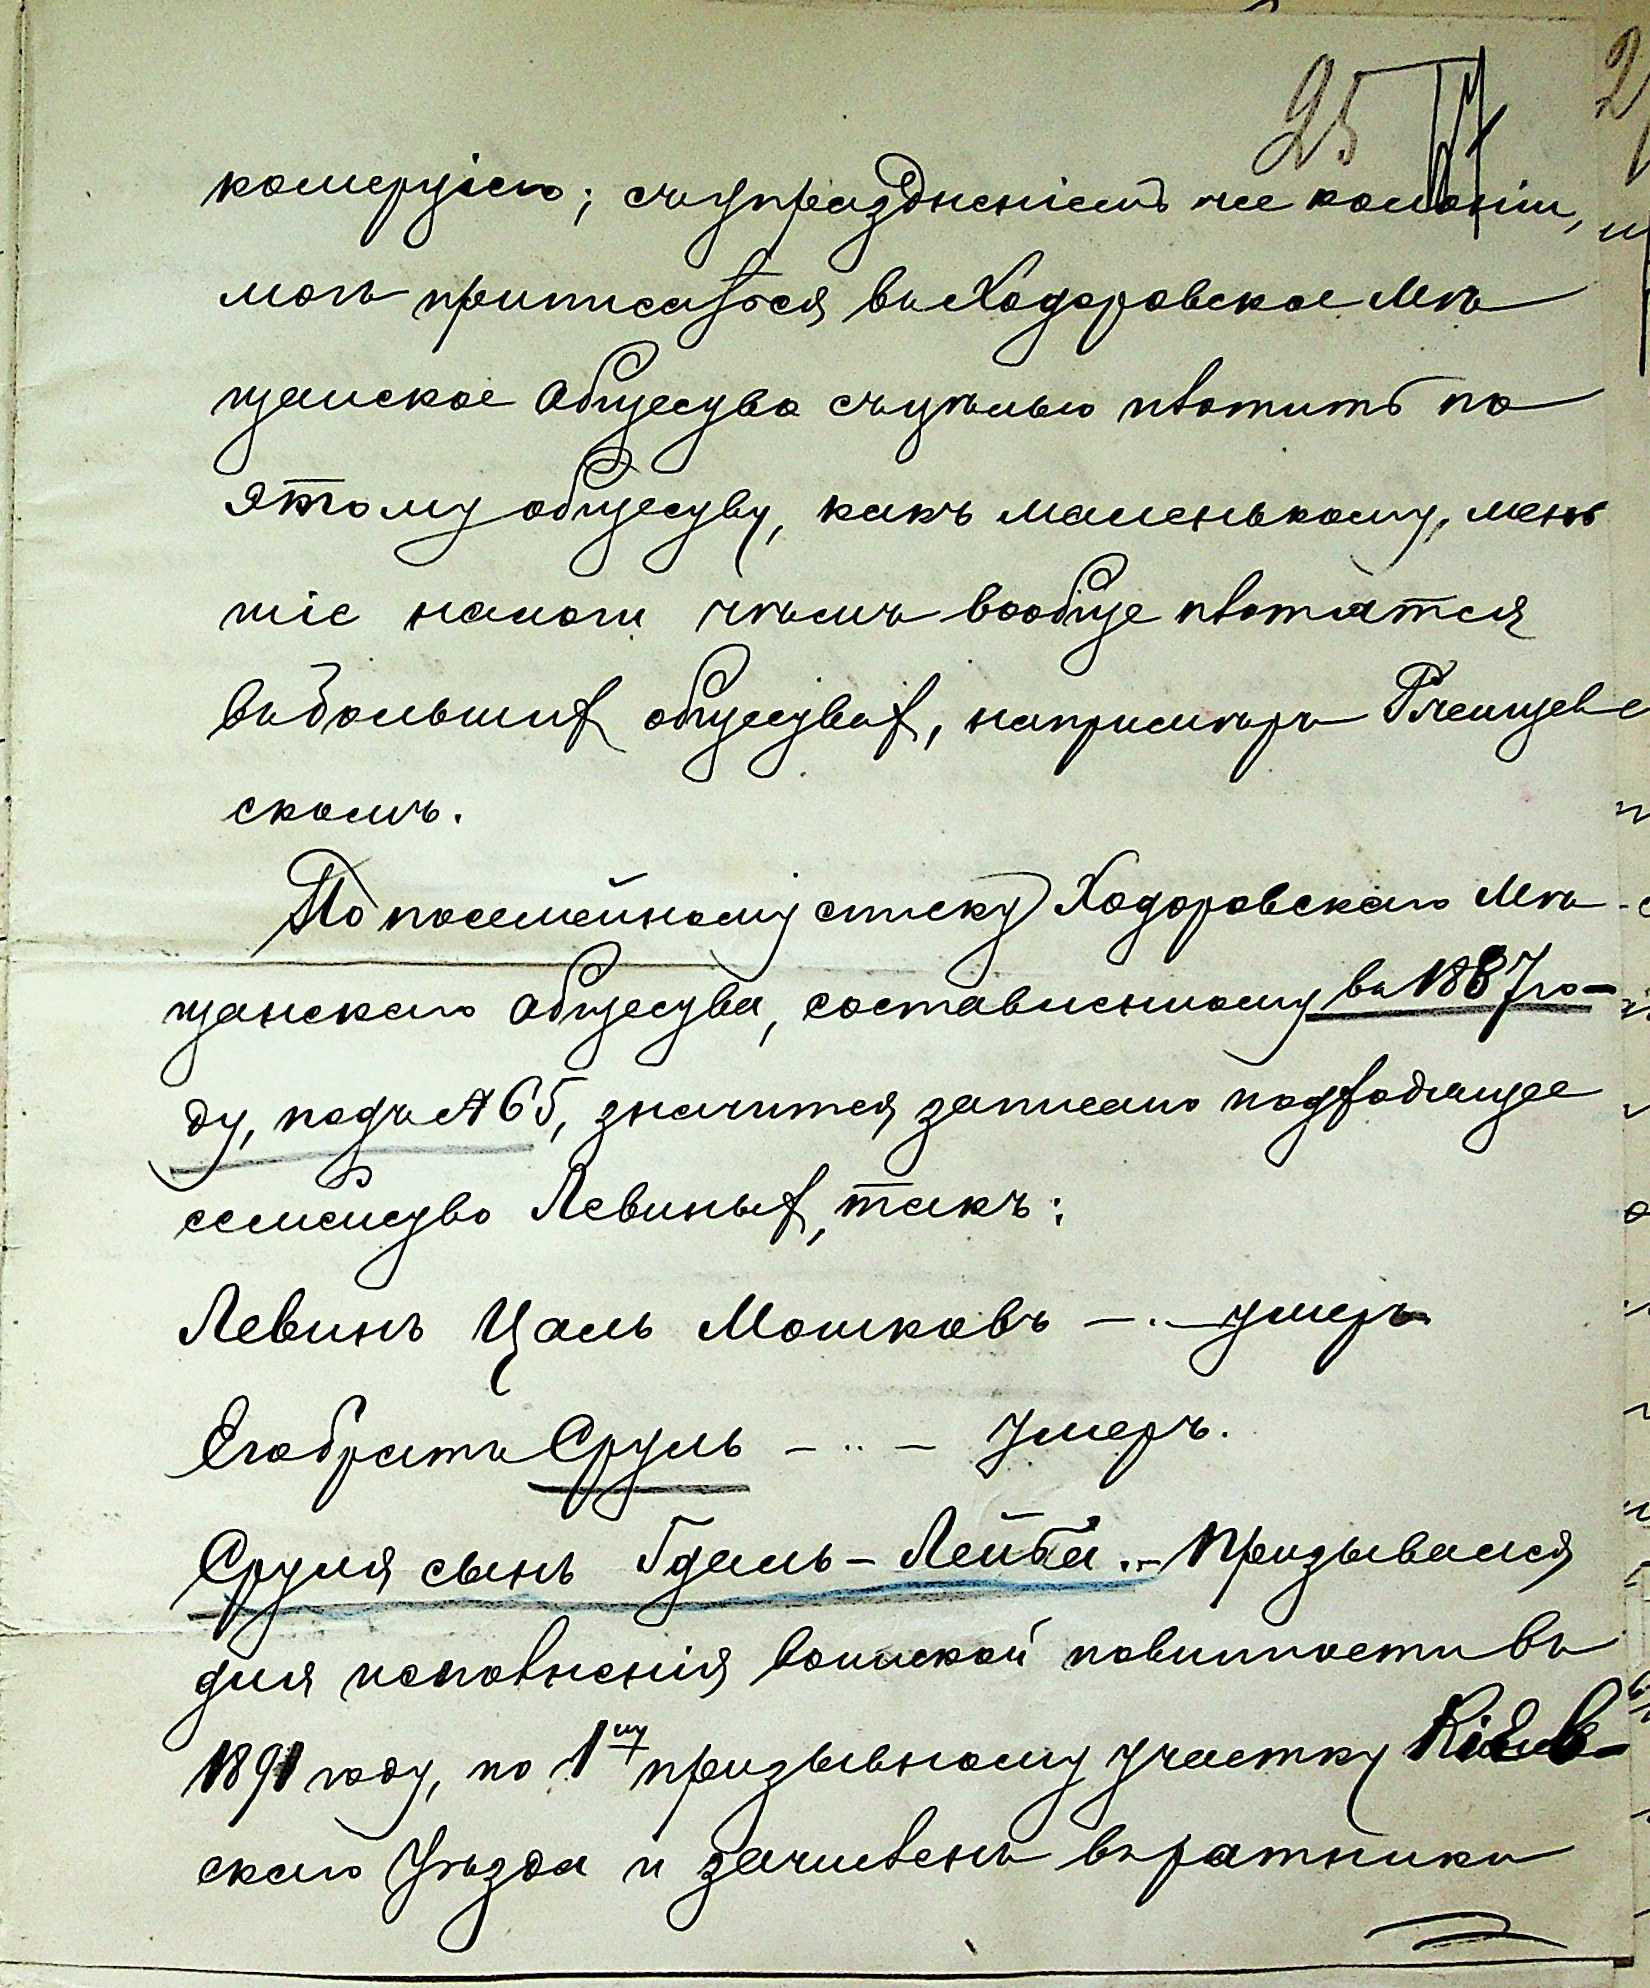 25
комерціею; съ упраздненіемъ же колоніи,
могъ приписаться въ Ходоровское Мѣ
щанское Общество съ цѣлью платить по
этому обществу, какъ маленькому, мень
шіе налоги чѣмъ вообще платятся
въ большихъ обществахъ, напримѣръ
скомъ.
По посемейному списку Ходоровскаго Мѣ
щанскаго Общества, составленному въ 1887 го-
ду, подъ № 65, значится записано подходящее
семейство Левиныхъ, такъ:
Левинъ Цаль Мошковъ — . — умеръ
Его братъ Сруль — .. — умеръ.
Сруля сынъ Гдаль-Лейба .. — призывался
для исполненія воинской повинности въ
1891 году, по 1му призывному участку Кіев-
скаго Уѣзда и зачисленъ въ ратники